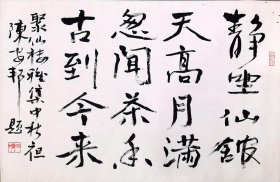 静坐仙馆
天高月满
忽闻茶香
古到今来
聚仙楼雅集中秋夜
陈安邦题